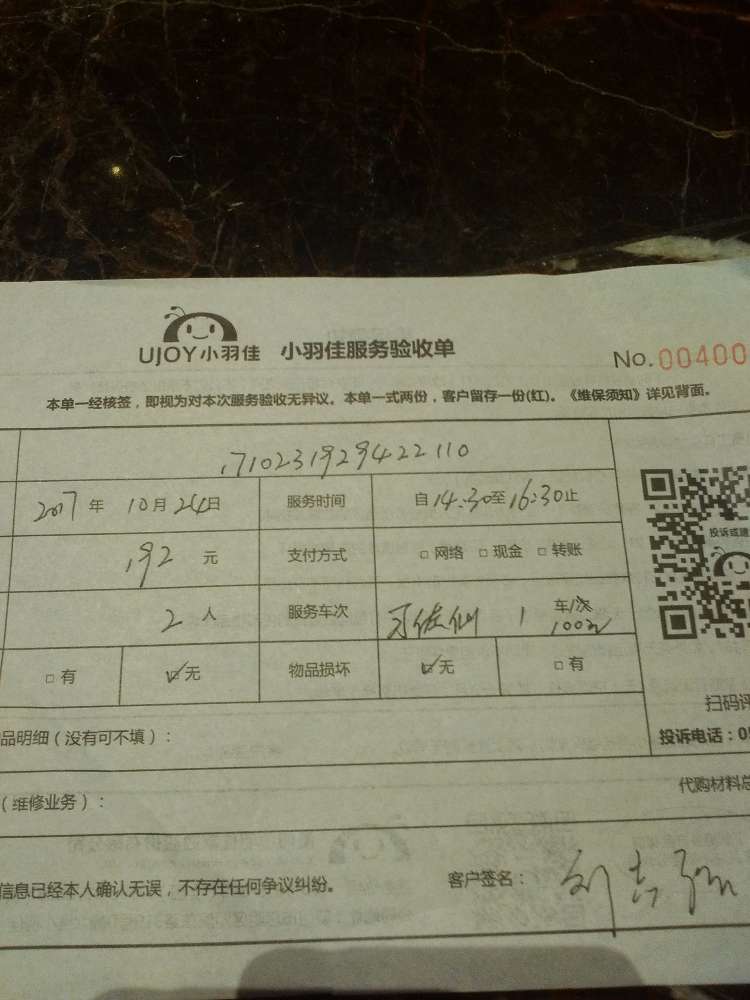 UJOY小羽佳 小羽佳服务验收单
No.00400
本单一经核签，即视为对本次服务验收无异议。本单一式两份，客户留存一份(红)。《维保须知》详见背面。
1710231929422110
2017年 10月24日 服务时间 自14:30至16:30止
192元 支付方式 □网络 □现金 □转账
2人 服务车次 1 车/次
100元
□有 ☑无 物品损坏 ☑无 □有
投诉或建
扫码评
品明细（没有可不填）：
投诉电话：05
（维修业务）：
代购材料总
信息已经本人确认无误，不存在任何争议纠纷。 客户签名：刘志强